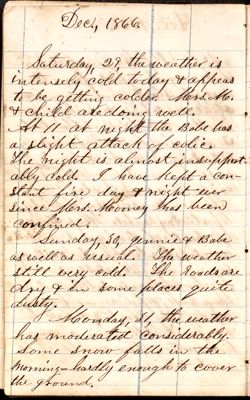 Dec, 1866.
Saturday 29, the weather is
intensely cold today & appears
to be getting colder. Mrs. M.
& child are doing well.
At 11 at night the Babe has
a slight attack of colic.
The night is almost insupport-
ably cold. I have kept a con-
stant fire day & night ever
since Mrs. Mooney has been
confined.
Sunday, 30, Jennie & Babe
as well as usual. The weather
still very cold. The Roads are
dry & in some places quite
dusty.
Monday, 31, the weather
has moderated considerably.
Some snow falls in the
morning—hardly enough to cover
the ground.